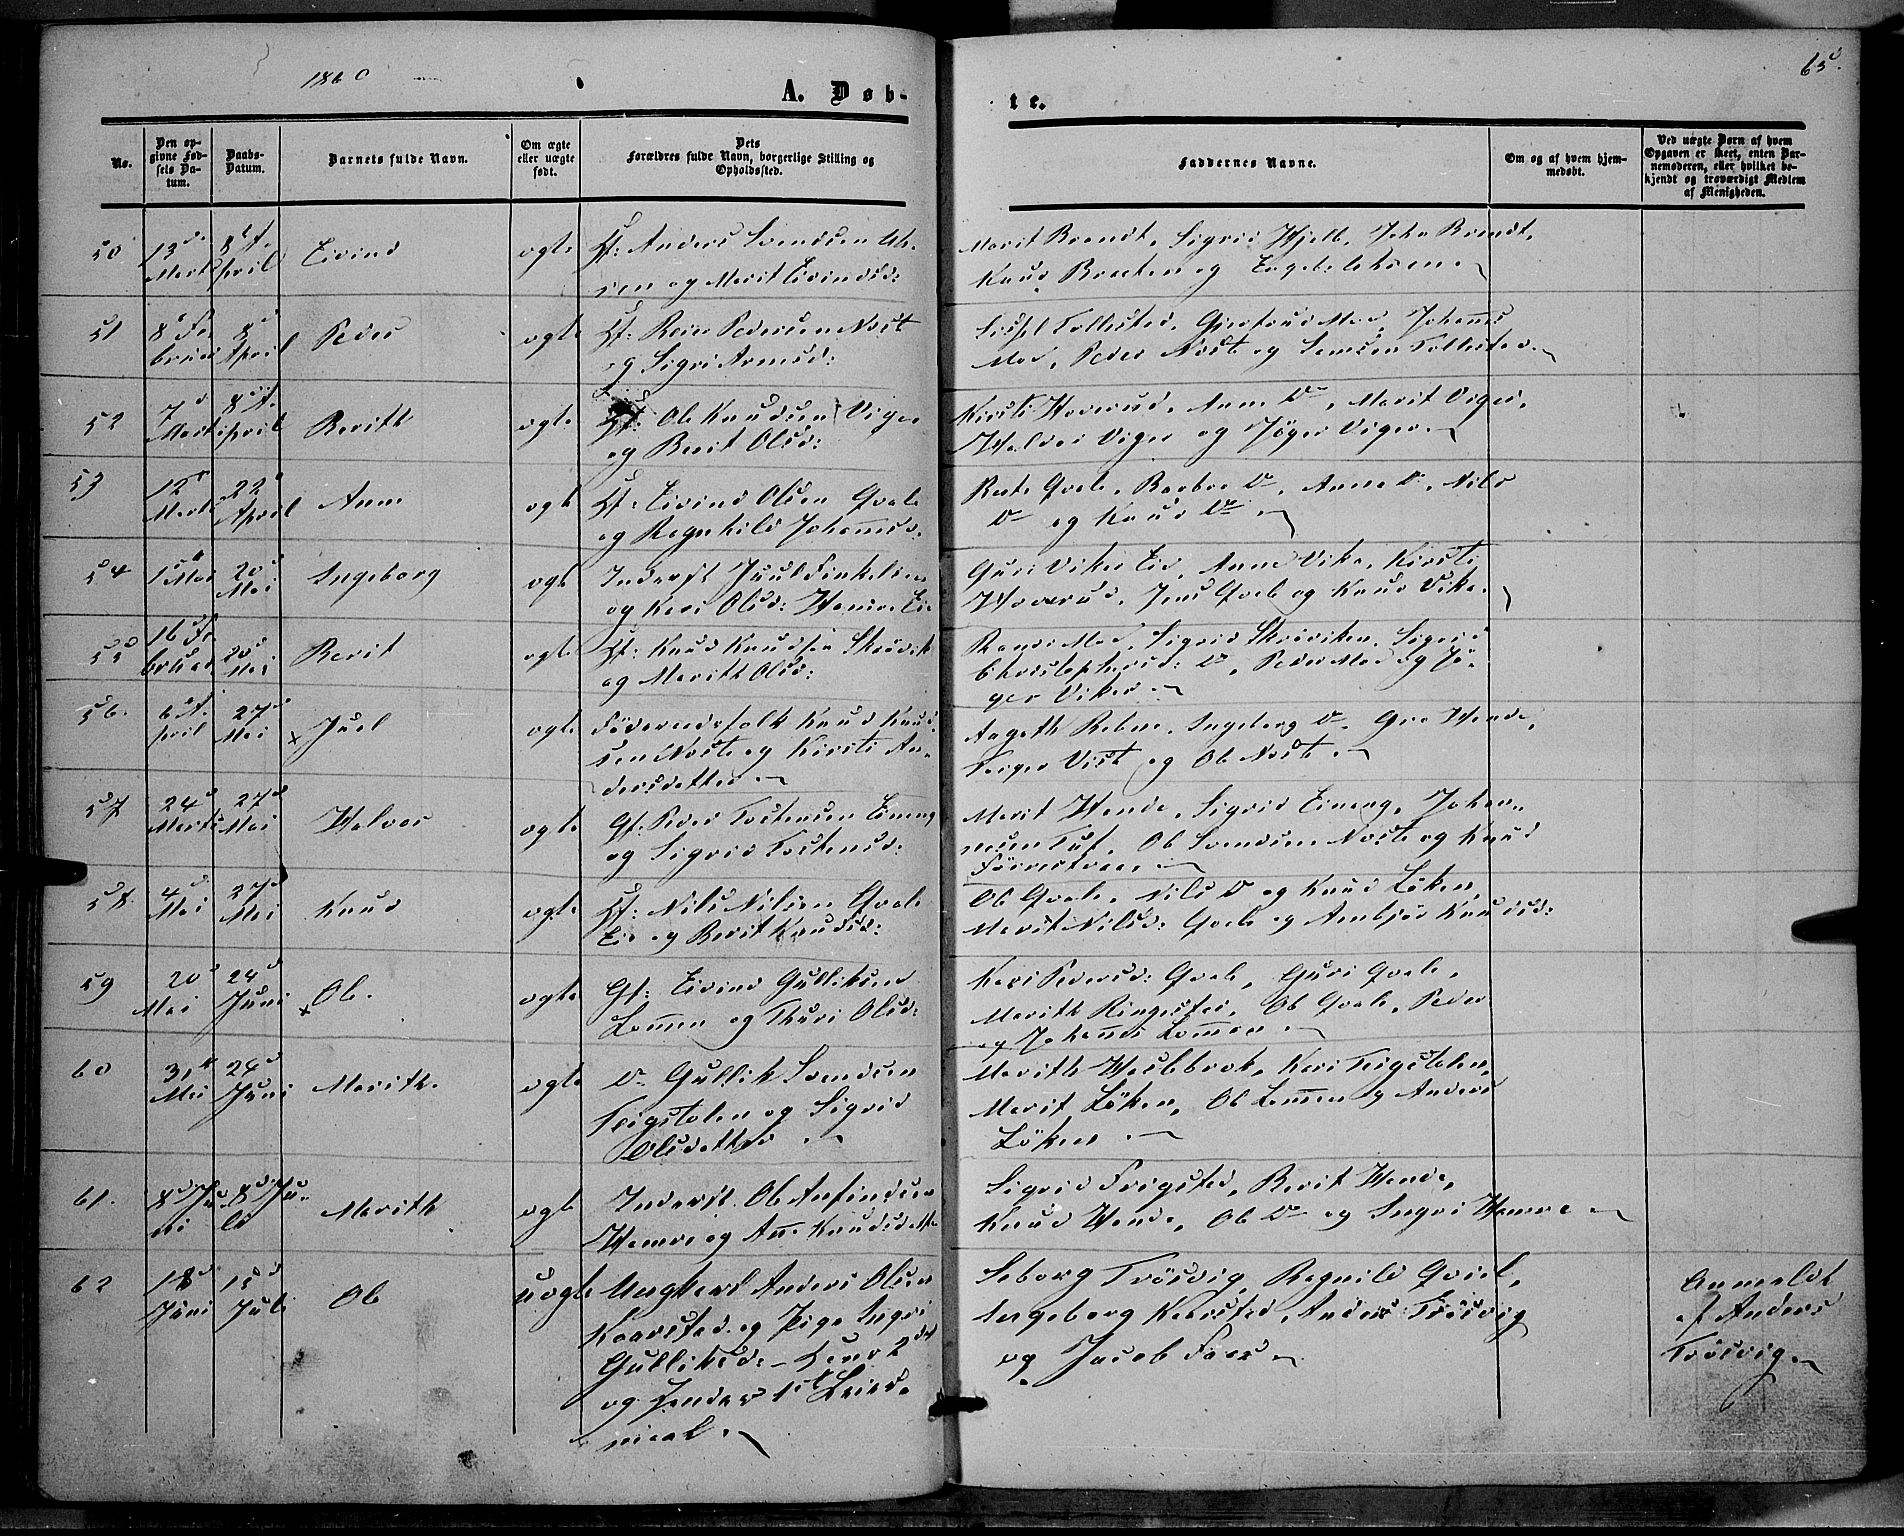 1860
65.
A. Døb-
te.
No.
Den op-
givne Fød-
sels Da-
tum.
Daabs-
Datum.
Barnets fulde Navn.
Om ægte
eller uægte
født.
Dets
Forældres fulde Navn, borgerlige Stilling og
Opholdssted.
Faddernes Navne.
Om og af hvem hjem-
medøbt.
Ved uægte Børn af hvem
Opgaven er skeet, enten Bar-
nemoderen, eller hvilket be-
kjendt og troværdigt Medlem
af Menigheden.
50
13de
Marts
8de A-
pril
Eivind
ægte
Hf: Anders Svendsen
og Marit Eivindsd:
Marit Brandt, Sigrid Hjelle, John Brandt,
Knud Braaten og
51
8de Fe-
bruar
8de
April
Peder
ægte
Peder Pedersen Noste
og Sigri Arnesd:
Tollefsted, Johannes
Moe, Peder Noste og Samsen Tollefsted.
52
7de
Marts
8de A-
pril
Berith
ægte
Hf: Ole Knudsen Viger
og Berit Olsd:
Kirsti Haverud, Anne Do, Marit Viger,
Halvor Viger og Jöger Viger.
53
12te
Marts
22de
April
Anne
ægte
Hf: Eivind Olsen Qvale
og Ragnhild Johannesd:
Beate Qvale, Barbro Do, Anne Do, Nils
Do og Knud Do.
54
1ste Mai
20de
Mai
Ingeborg
ægte
Inderst Juul Finkelsen
og Kari Olsd: Hamre Eie
Guri Viken Eie, Anne Vike, Kirsti
Haverud, Jens Qvale og Knud Vike.
55
16de Fe-
bruar
20de
Mai
Berit
ægte
Hf: Knud Knudsen Skrövik
og Marith Olsd:
Randi Moe, Sigrid Skröviken, Sigrid
Christophersd: Do, Peder Moe og Jö-
ger Viken.
56.
6te A-
pril
27de
Mai
x Juel
ægte
Föderaadsfolk Knud Knud-
sen Noste og Kirsti An-
dersdatter
Aagoth Rebne, Ingeborg Do, Gro Wende,
Vist og Ole Noste.
57
24de
Marts
27de
Mai
Halvor
ægte
Gf: Peder Tostensen Eineng
og Sigrid Tostensd:
Marit Wende, Sigrid Eineng, Johan-
nes Tuf, Ole Svendsen Noste og Knud
58.
4de
Mai
27de
Mai
Knud
ægte
Hf: Nils Nilsen Qvale
Eie og Berit Knudsd:
Ole Qvale, Nils Do og Knud Löken,
Marit Nilsd: Qvale og Ambjör Knudsd:
59
20de
Mai
24de
Juni
x Ole.
ægte
Gf: Eivind Gulliksen
Lomen og Thuri Olsd:
Kari Pedersd: Qvale, Guri Qvale,
Marith Ringested, Ole Qvale, Peder
og Johannes Lomen.
60
31te
Mai
24de
Juni
Marith.
ægte
Do Gullik Svendsen
Feigstolen og Sigrid
Olsdatter
Marith Hvalebroek, Kari Feigstolen,
Marit Löken, Ole Lomen og Anders
Löken
61.
8de Ju-
ni
8de Ju-
li
Marith
ægte
Inderst. Ole Anfindsen
Hamre og Anne Knudsdatter
Sigrid Frigsted, Berit Wende,
Knud Wende, Ole Do og Ingri Hamre
62
18de
Juni
15de
Juli
Ole
uægte
Ungkarl Anders Olsen
Kaarstad og Pige Ingri
Gulliksd. - Hans 2det
og Hendes 1ste Leier-
maal.
Seborg Trösvig, Ragnild Qviel,
Ingeborg Kaarstad, Anders Trösvig
og Jacob
Anmeldt
af Anders
Trösvig